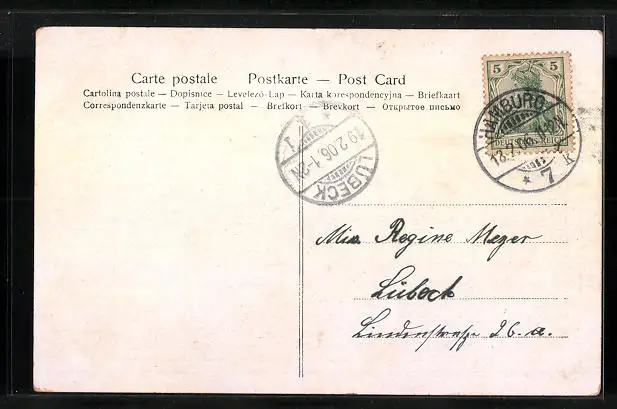 Carte postale Postkarte — Post Card
Cartolina postale — Dopisnice — Levelező-Lap — Karta korespondencyjna — Briefkaart
Correspondenzkarte — Tarjeta postal — Brefkort — Brevkort — Открытое письмо
5 5
DEUTSCHES REICH
HAMBURG
* 7 k
1
19.2.06.1-2N
LÜBECK
Regine Meyer
Lübeck
Lindenstraße 26. a.